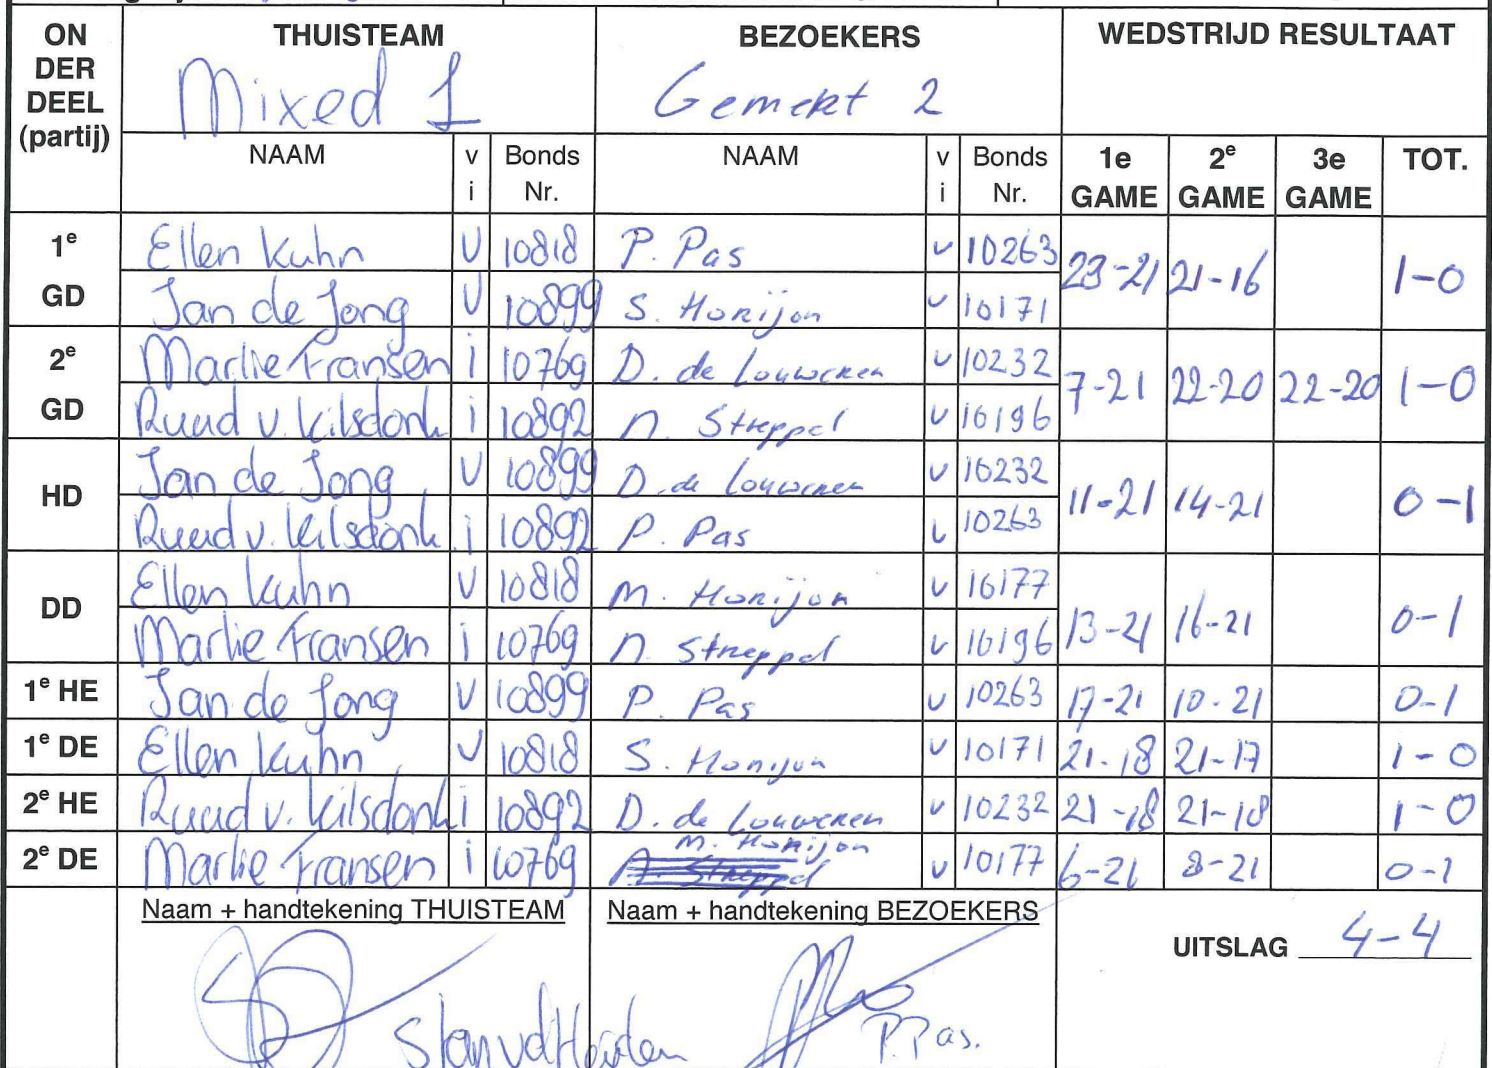 ON DER DEEL (partij) THUISTEAM BEZOEKERS WEDSTRIJD RESULTAAT
Mixed 1 Gemekt 2
NAAM v i Bonds Nr. NAAM v i Bonds Nr. 1e GAME 2e GAME 3e GAME TOT.
1e GD Ellen Kuhn v 10818 P. Pas v 10263 23-21 21-16 1-0
Jan de Jong v 10899 S. Honijon v 10171
2e GD Marlie Fransen i 10769 D. de Louweren v 10232 7-21 22-20 22-20 1-0
Ruud v. Kilsdonk i 10892 N. Streppel v 10196
HD Jan de Jong v 10899 D. de Louweren v 10232 11-21 14-21 0-1
Ruud v. Kilsdonk i 10892 P. Pas v 10263
DD Ellen Kuhn v 10818 M. Honijon v 10177 13-21 16-21 0-1
Marlie Fransen i 10769 N. Streppel v 10196
1e HE Jan de Jong v 10899 P. Pas v 10263 17-21 10-21 0-1
1e DE Ellen Kuhn v 10818 S. Honijon v 10171 21-18 21-17 1-0
2e HE Ruud v. Kilsdonk i 10892 D. de Louweren v 10232 21-18 21-18 1-0
2e DE Marlie Fransen i 10769 M. Honijon v 10177 6-21 8-21 0-1
N. Streppel
Naam + handtekening THUISTEAM Naam + handtekening BEZOEKERS
UITSLAG 4-4
Stan vd Heijden P. Pas.